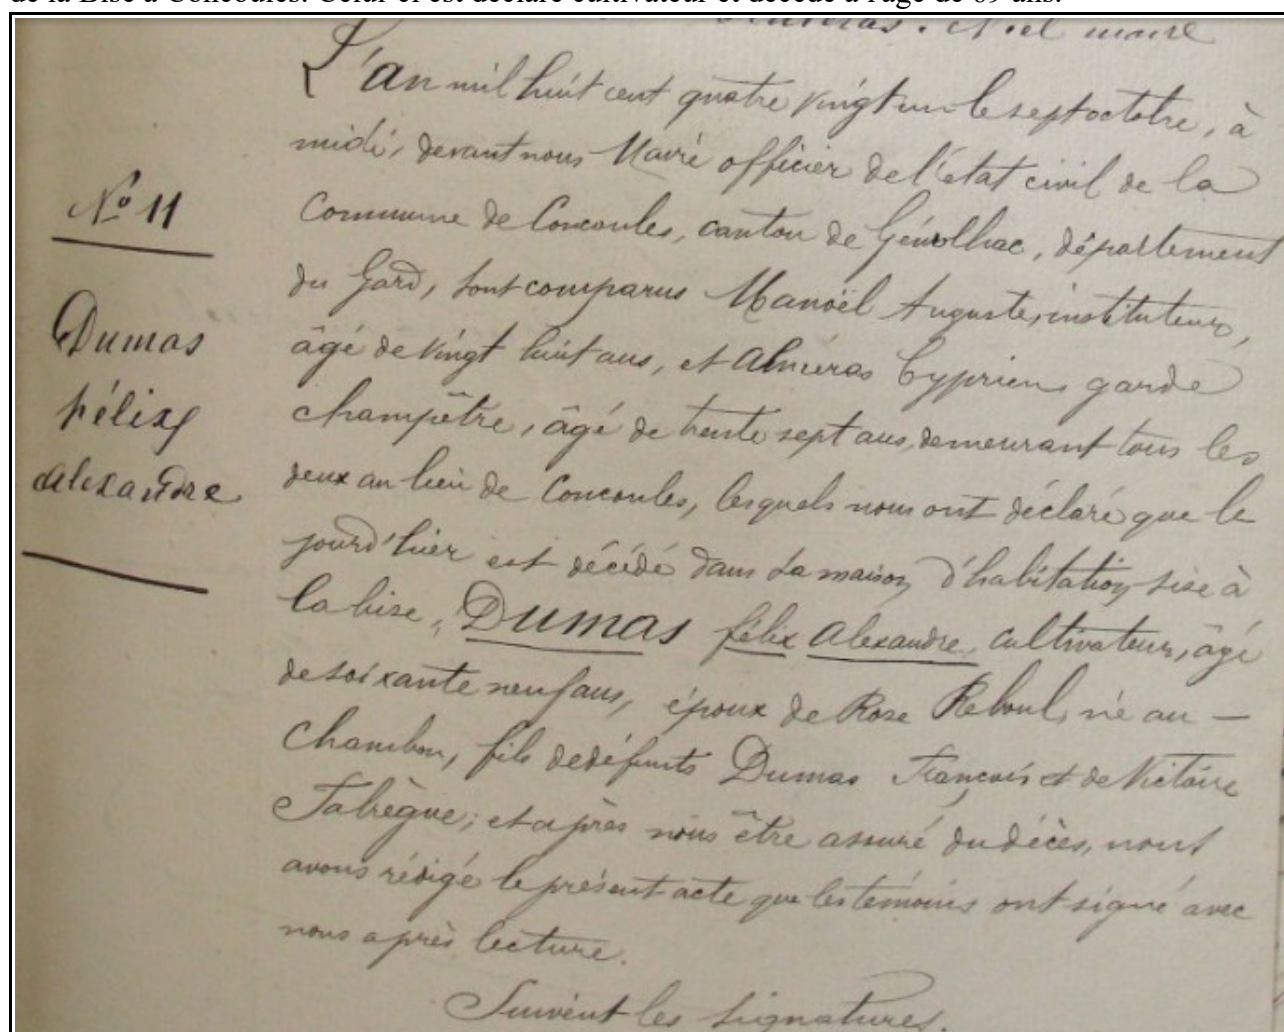 de la Bise à Concoules. Celui-ci est déclaré cultivateur et décédé à l'âge de 69 ans.
Niel maire
L'an mil huit cent quatre vingt un le sept octobre, à
midi, devant nous Maire officier de l'état civil de la
Commune de Concoules, canton de Génolhac, département
du Gard, sont comparus Manoël Auguste, instituteur,
âgé de vingt huit ans, et Alméras Cyprien, garde
champêtre, âgé de trente sept ans, demeurant tous les
deux au lieu de Concoules, lesquels nous ont déclaré que le
jourd'hier est décédé dans sa maison d'habitation sise à
la bise, DUMAS félix Alexandre, cultivateur, âgé
de soixante neuf ans, époux de Rose Reboul, né au –
Chambon, fils de défunts Dumas François et de Victoire
Fabrègue; et après nous être assuré du décès, nous
avons rédigé le présent acte que les témoins ont signé avec
nous après lecture.
Suivent les signatures.
No 11
Dumas
félix
alexandre